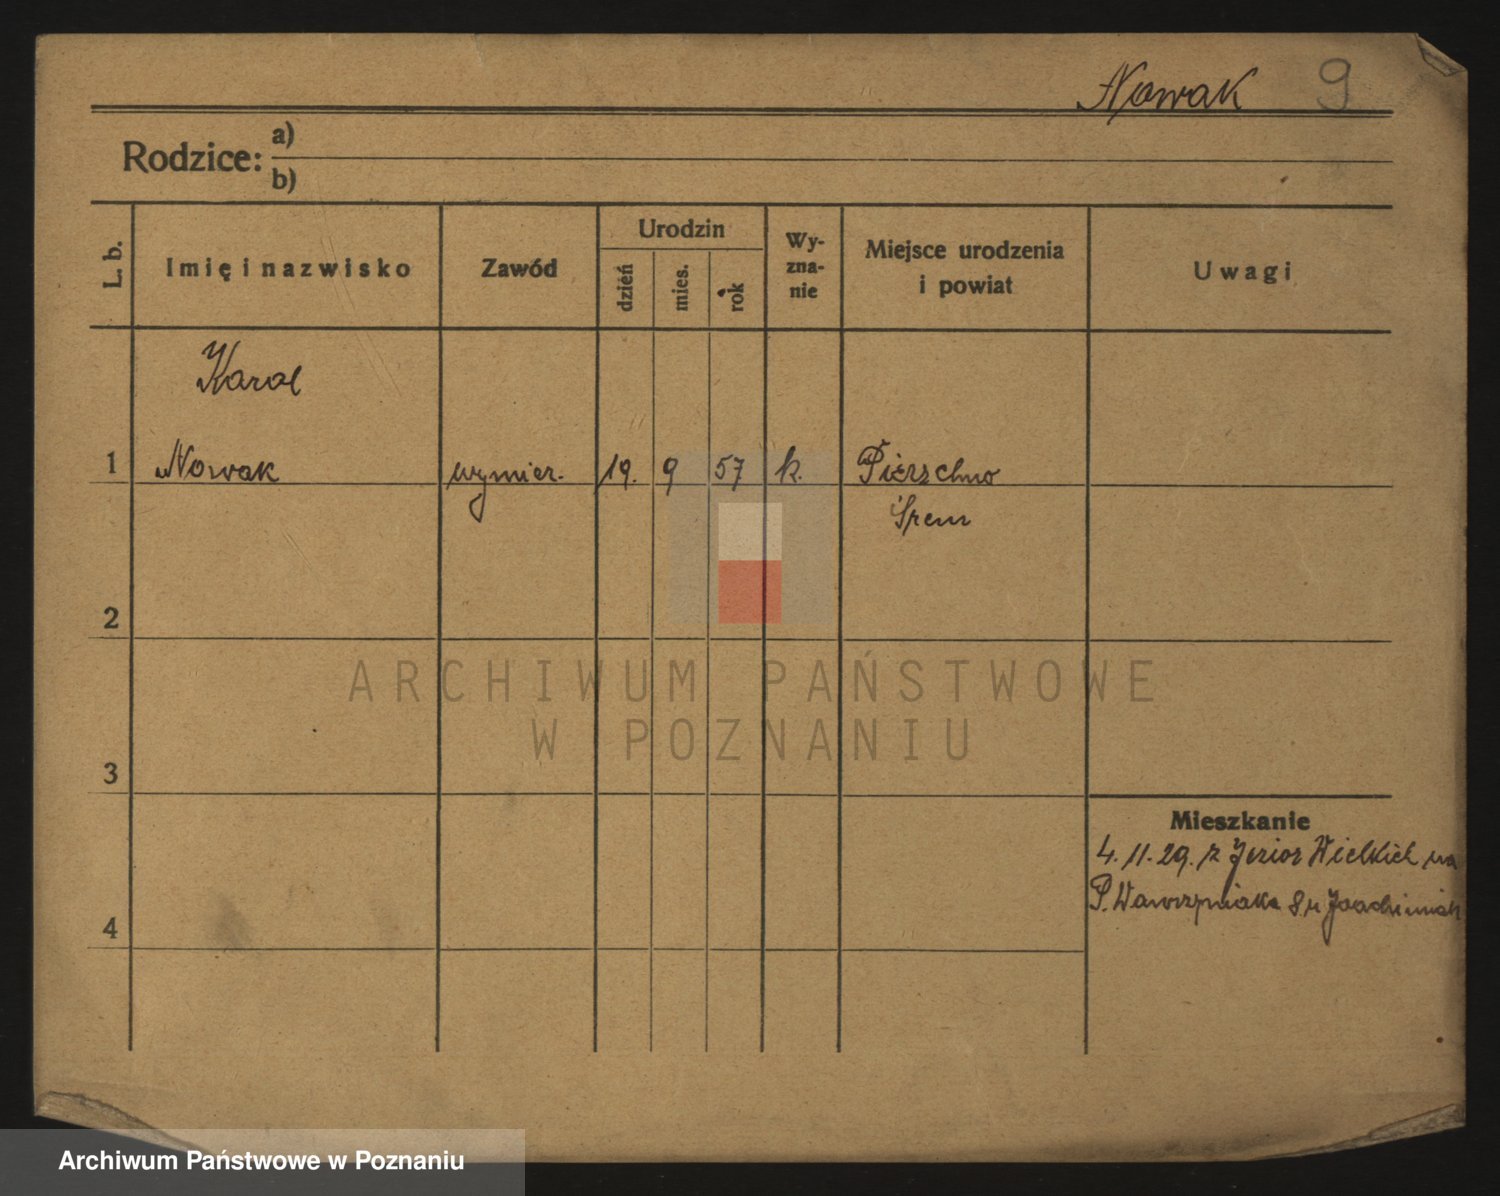 Nowak 9
Rodzice: a)
b)
L. b.
Imię i nazwisko
Zawód
Urodzin
dzień
mies.
rok
Wy-
zna-
nie
Miejsce urodzenia
i powiat
Uwagi
Karol
1 Nowak wymier. 19. 9 57 k. Pierzchno
Śrem
2
3
4
Mieszkanie
4. 11. 29. z Jezior Wielkich na
P. Wawrzyniaka 8 u Joachimiak
ARCHIWUM PAŃSTWOWE
W POZNANIU
Archiwum Państwowe w Poznaniu